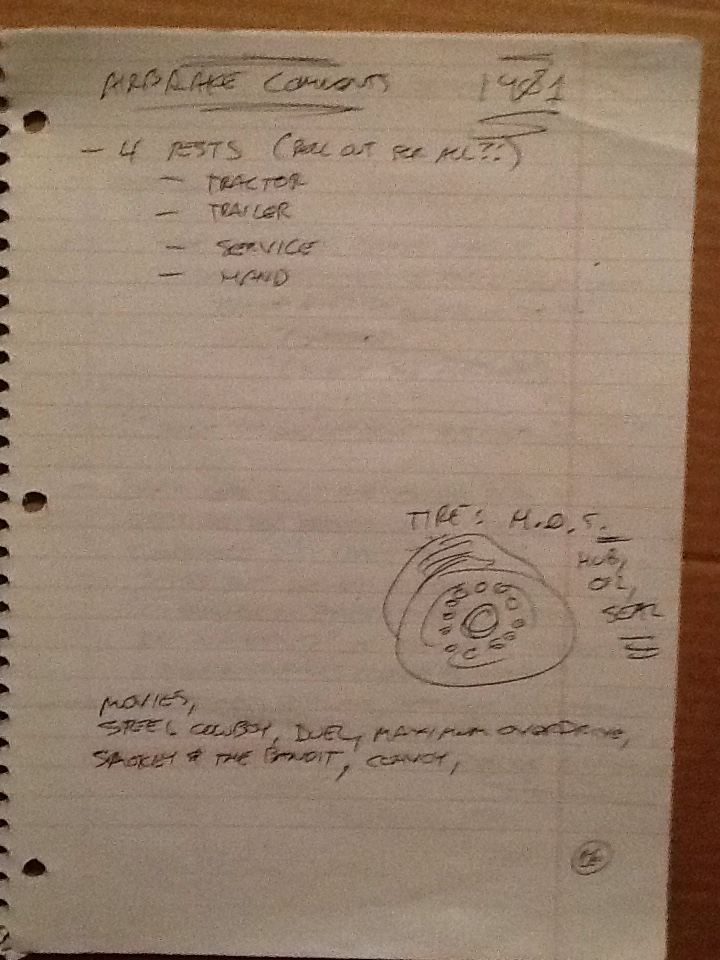 AIRBRAKE COMMENTS
1981
- 4 TESTS (ROLL OUT FOR ALL?!)
- TRACTOR
- TRAILER
- SERVICE
- HAND
TIRE: H.O.S.
HUB,
OIL,
SEAL
MOVIES,
STEEL COWBOY, DUEL, MAXIMUM OVERDRIVE,
SMOKEY & THE BANDIT, CONVOY,